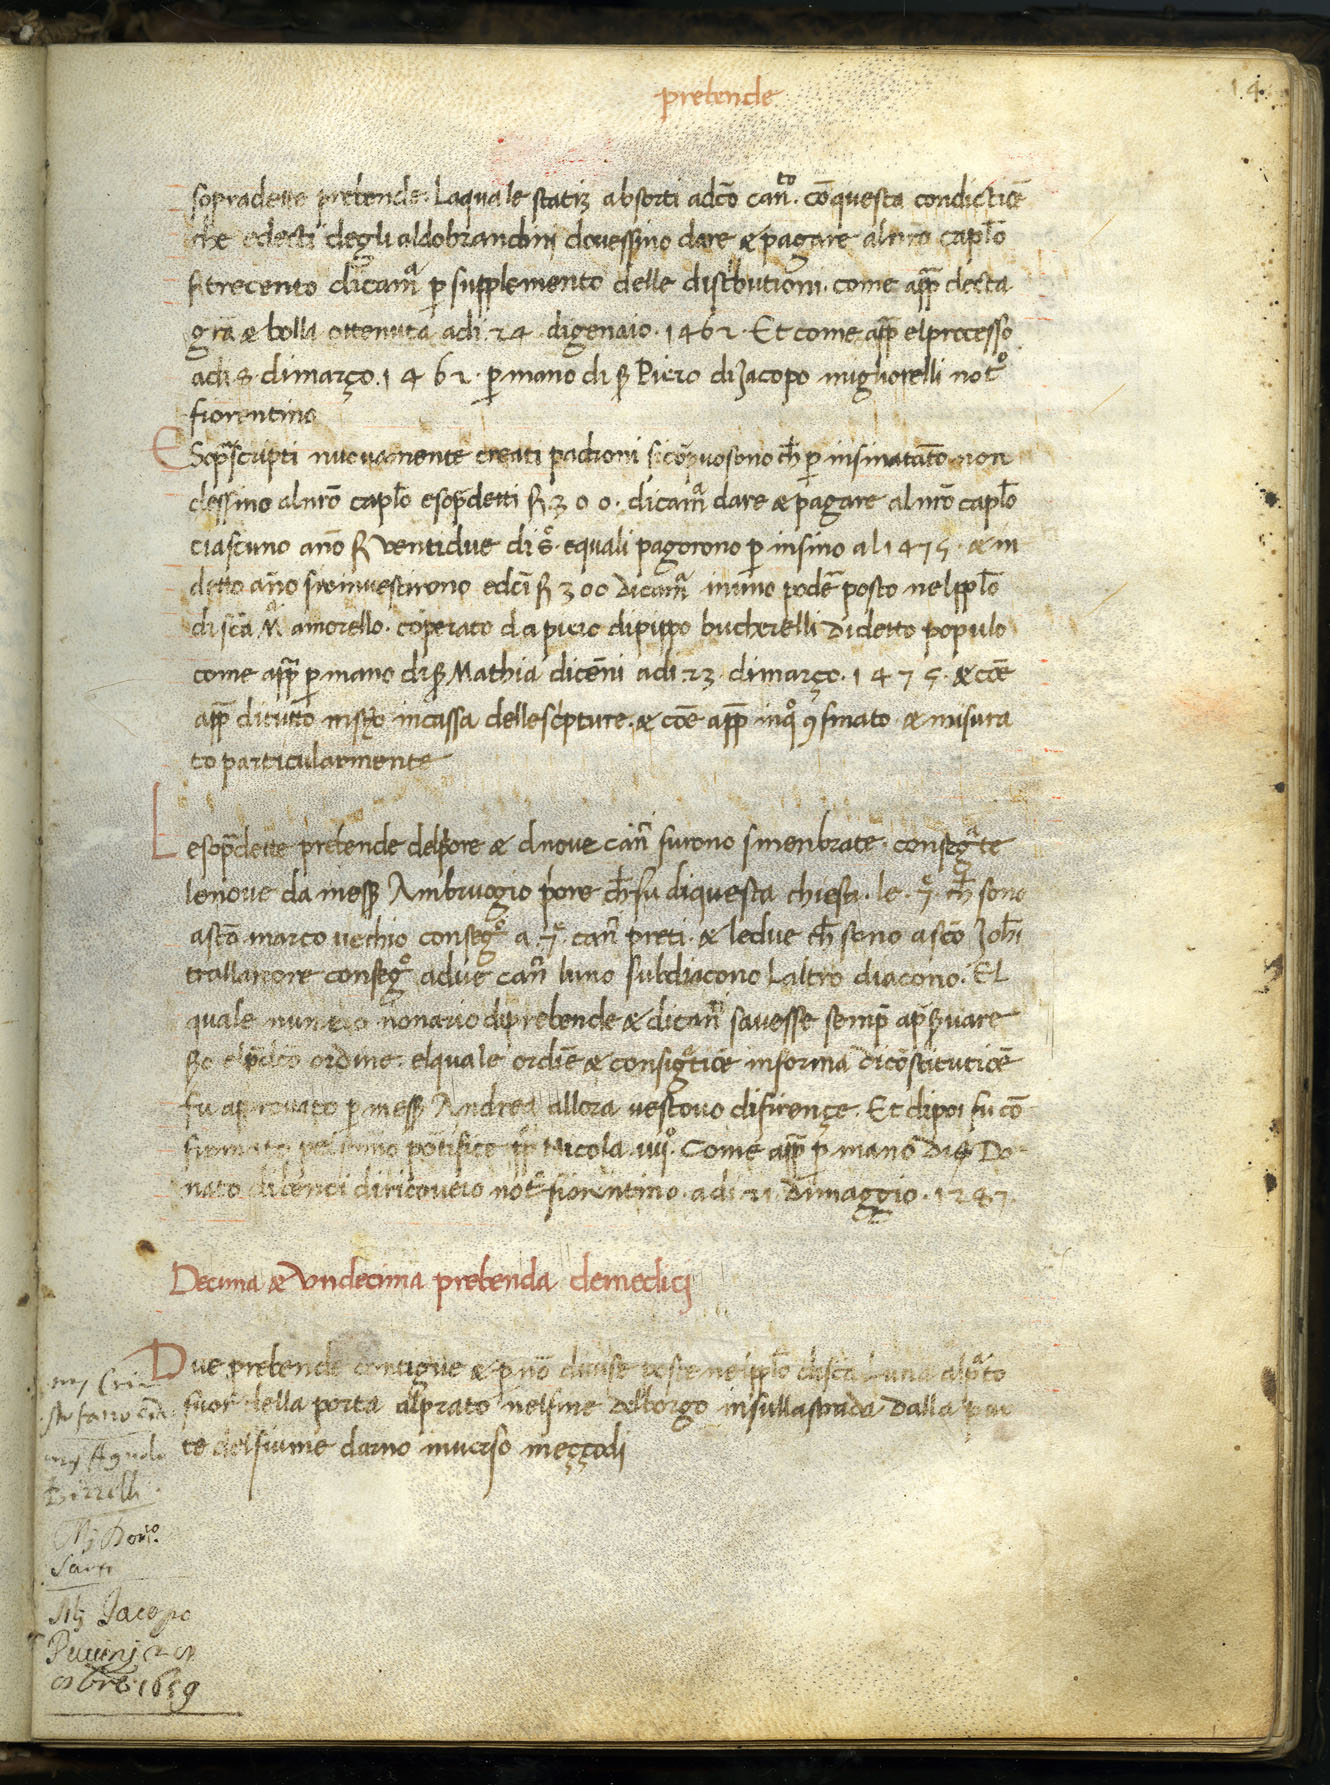 prebende
14
sopradette prebende. Laquale statiȝ absorti adcō canto. cōquesta condictiōe
che edecti degli aldobrandini dovessino dare & pagare alnrō caplō
fi trecento dicamā p supplemento delle distributioni. come appā decta
grā & bolla ottenuta adi. 24. digenaio. 1462. Et come appē elprocesso
adi 8. dimarço. 1462. p mano di s Piero di Jacopo migliorelli notº
fiorentino
E Sopāscripti nuovamente creati padroni si cōpuosono ch p insinatāto non
dessino alnrō caplō esopdetti fi 300. dicamā dare & pagare alnrō caplō
ciascuno anō fi ventidue di s. equali pagorono p insino al 1475. & in
detto año si rinvestirono edcī fi 300 dicamā inuno podē posto nelpplō
di scā Mā amorello. cōperato da piero dipippo bucherelli didetto populo
come appā p mano di s Mathia dicēni adi 23. dimarço. 1475. & cōe
appē ditutto nisto incassa dellescipture. & cōe appē inqº 9finato & misura
to particularmente
L esopdette prebende delpiore & dnove cañ furono smenbrate. consegāte
lenove da mess Ambruogio p̄ore ch fu diquesta chiesa. le. 7. ch sono
ascō marco vechio consegº a. 7. cañ preti. & ledue ch sono ascō Johī
trallamore consegº adue cañ luno subdiacono laltro diacono. El
quale numero nonario diprebende & dicañ savesse semp apsvare
so elpdcō ordine. elquale ordiē & consigātiōe informa dicōstitutiōe
fu approvato p mess Andrea allora vescovo difirençe. Et dipoi fu cō
firmato pelsōmo pontifice pp Nicola. iiii. Come appā p mano di s Do
nato dilenci diricovero notº fiorentino. adi 21. dimaggio. 1287
Decima & Undecima prebenda demedicj
Due prebende contigue & p nō divise poste nelpplō discā Lucia alpāto
fuor della porta alprato nelfine delborgo insullastrada dalla par
te delfiume darno inverso meççodi
stefano
my Agnolo
Mj Jacopo
obre 1659